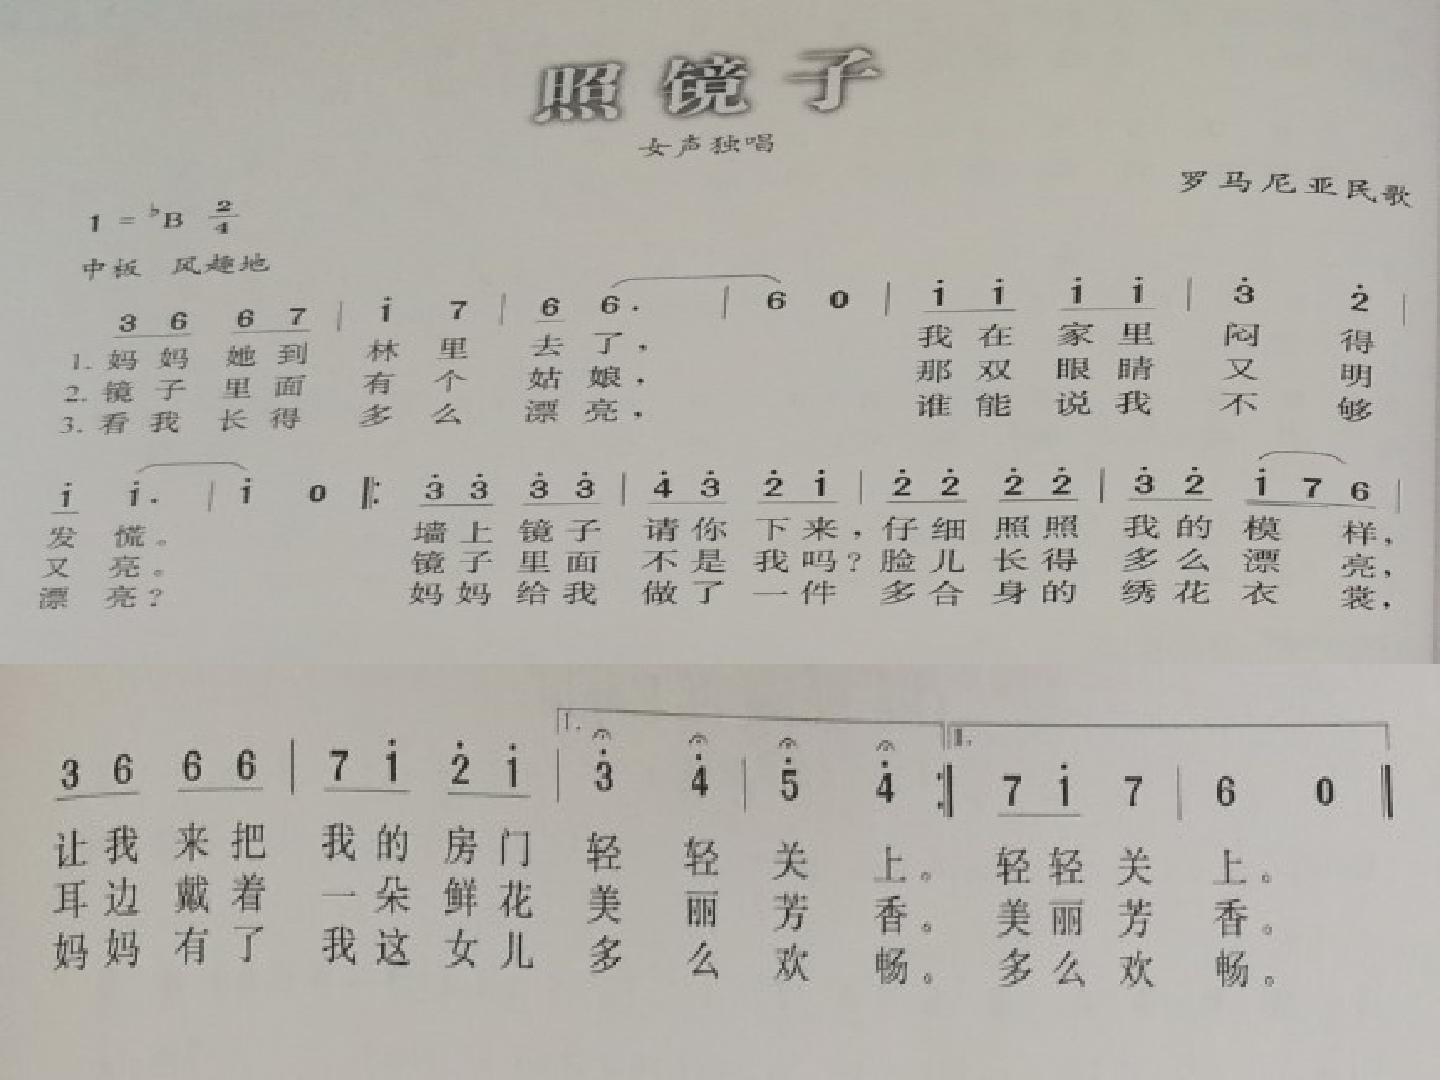 照镜子
女声独唱
罗马尼亚民歌
1 = ♭B 2/4
中板 风趣地
3 6 6 7 | i 7 | 6 6. | 6 0 | i i i i | 3̇ 2̇ |
1. 妈妈她到 林里 去了， 我在家里 闷得
2. 镜子里面 有个 姑娘， 那双眼睛 又明
3. 看我长得 多么 漂亮， 谁能说我 不够
i i. | i 0 ‖: 3̇ 3̇ 3̇ 3̇ | 4̇ 3̇ 2̇ i | 2̇ 2̇ 2̇ 2̇ | 3̇ 2̇ i 7 6 |
发慌。 墙上镜子 请你下来，仔细照照 我的模样，
又亮。 镜子里面 不是我吗？脸儿长得 多么漂亮，
漂亮？ 妈妈给我 做了一件 多合身的 绣花衣裳，
1. II.
3 6 6 6 | 7 i 2̇ i | 3̇ 4̇ | 5̇ 4̇ :‖ 7 i 7 | 6 0 ‖
让我来把 我的房门 轻轻关上。 轻轻关上。
耳边戴着 一朵鲜花 美丽芳香。 美丽芳香。
妈妈有了 我这女儿 多么欢畅。 多么欢畅。